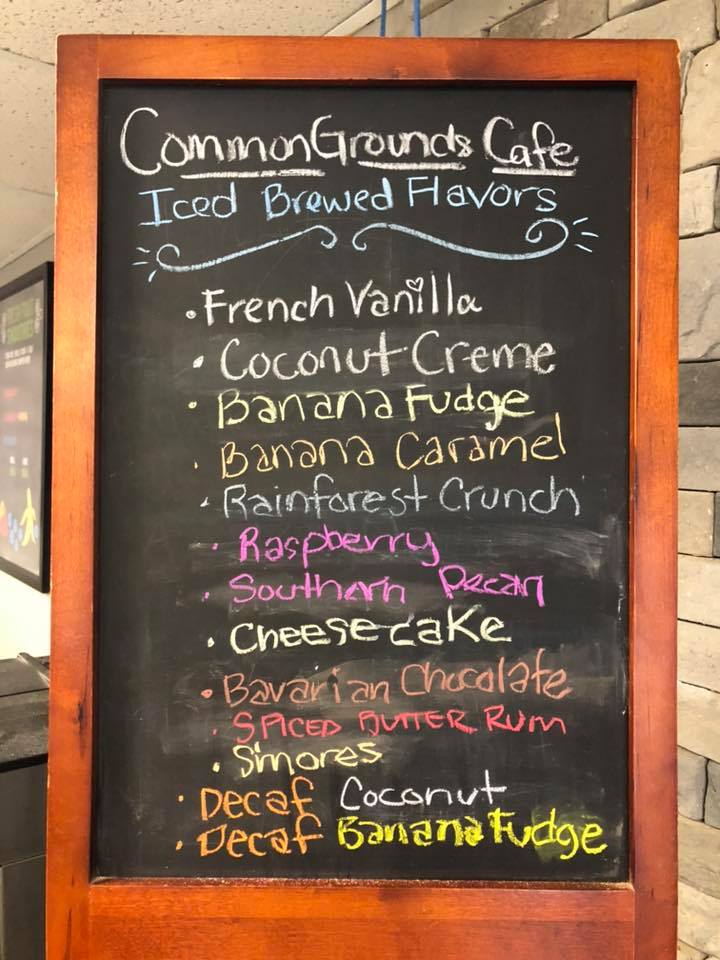 CommonGrounds Cafe
Iced Brewed Flavors
• French Vanilla
• Coconut Creme
• Banana Fudge
• Banana Caramel
• Rainforest Crunch
• Raspberry
• Southern Pecan
• Cheesecake
• Bavarian Chocolate
• SPICED BUTTER RUM
• S'mores
• Decaf Coconut
• Decaf Banana Fudge